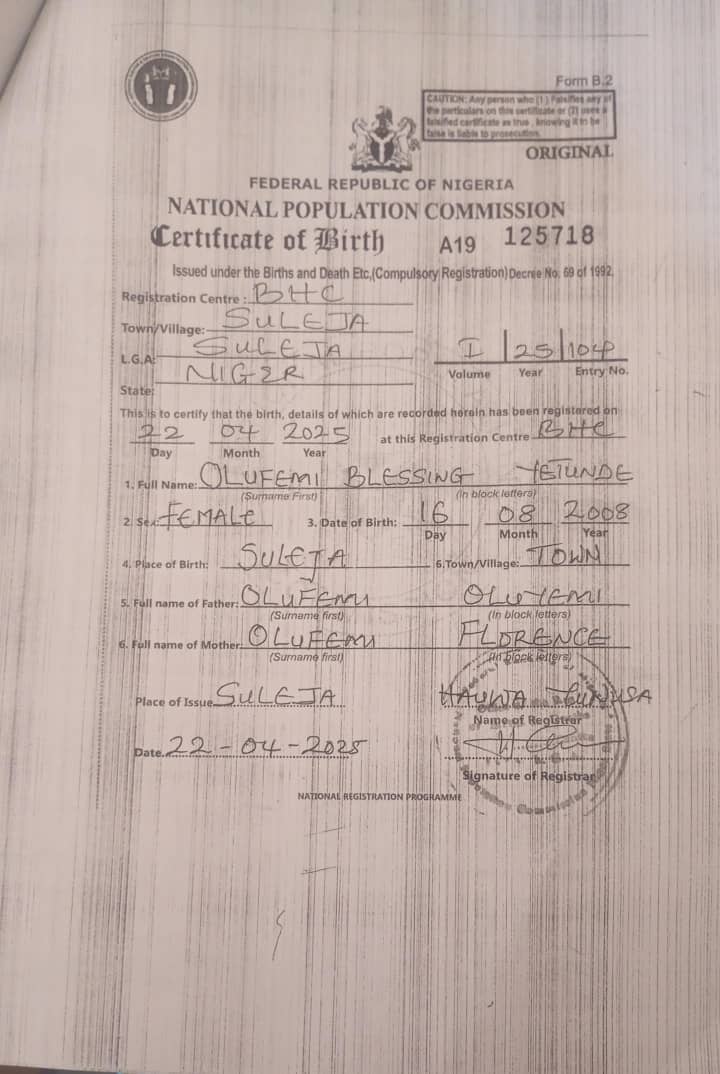 Form B.2
CAUTION: Any person who (1) Falsifies any of
the particulars on this certificate or (2) uses a
falsified certificate as true, knowing it to be
false is liable to prosecution.
ORIGINAL
FEDERAL REPUBLIC OF NIGERIA
NATIONAL POPULATION COMMISSION
Certificate of Birth A19 125718
Issued under the Births and Death Etc,(Compulsory Registration) Decree No. 69 of 1992.
Registration Centre : BHC
Town/Village: SULEJA
L.G.A: SULEJA I 25 104
Volume Year Entry No.
State: NIGER
This is to certify that the birth, details of which are recorded herein has been registered on
22 04 2025 at this Registration Centre BHC
Day Month Year
1. Full Name: OLUFEMI BLESSING YETUNDE
(Surname First) (In block letters)
2. Sex: FEMALE 3. Date of Birth: 16 08 2008
Day Month Year
4. Place of Birth: SULEJA 6.Town/Village: TOWN
5. Full name of Father: OLUFEMI OLUYEMI
(Surname first) (In block letters)
6. Full name of Mother: OLUFEMI FLORENCE
(Surname first) (In block letters)
Place of Issue SULEJA HAUWA
Name of Registrar
Date. 22-04-2025
Signature of Registrar
NATIONAL REGISTRATION PROGRAMME